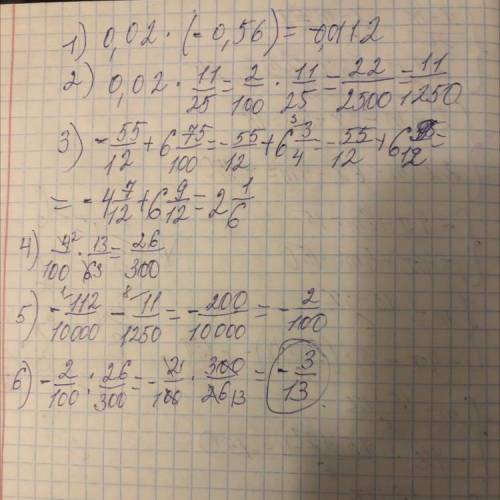 1) 0,02 · (- 0,56) = -0,0112
2) 0,02 · 11/25 = 2/100 · 11/25 = 22/2500 = 11/1250
3) - 55/12 + 6 75/100 = - 55/12 + 6 3/4 = - 55/12 + 6 9/12 =
= - 4 7/12 + 6 9/12 = 2 1/6
4) 4/100 · 13/6 = 26/300
5) - 112/10000 - 11/1250 = - 200/10000 = - 2/100
6) - 2/100 : 26/300 = - 2/100 · 300/26 = - 3/13